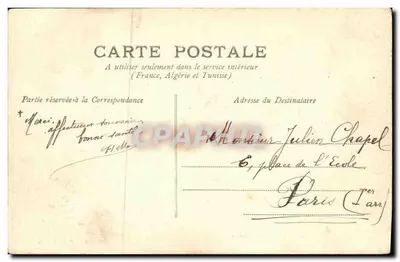 CARTE POSTALE
A utiliser seulement dans le service intérieur
(France, Algérie et Tunisie)
Partie réservée à la Correspondance
Adresse du Destinataire
Merci, affectueux souvenirs
bonne santé
Monsieur Julien Chapel
6, place de l'Ecole
Paris (Ier arr)